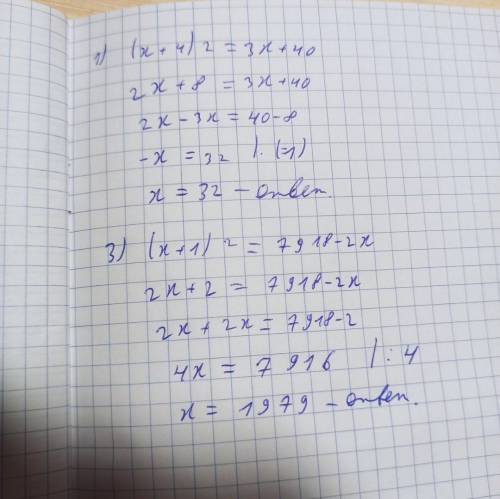 1) (x + 4) 2 = 3x + 40
2x + 8 = 3x + 40
2x - 3x = 40 - 8
-x = 32 | · (-1)
x = 32 - ответ.
3) (x + 1) 2 = 7918 - 2x
2x + 2 = 7918 - 2x
2x + 2x = 7918 - 2
4x = 7916 | : 4
x = 1979 - ответ.